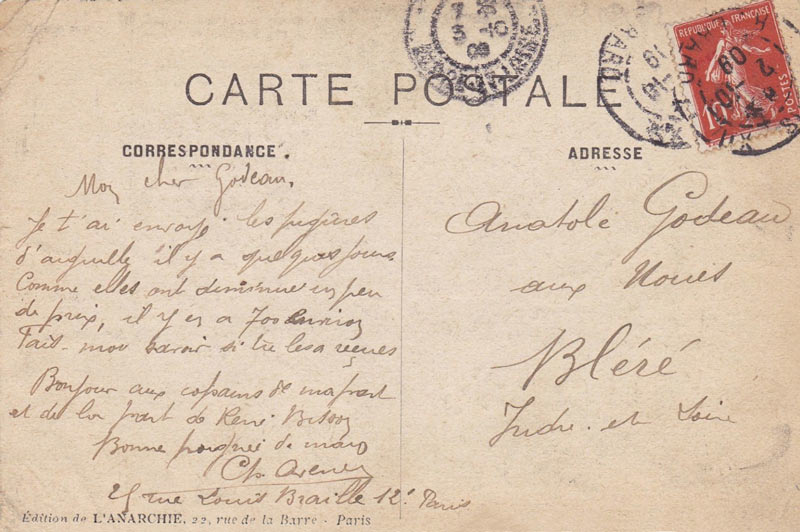 CARTE POSTALE
CORRESPONDANCE.
ADRESSE
Mon cher Godeau,
Je t'ai envoyé les piqûres
d'aiguille il y a quelques jours
Comme elles ont diminué un peu
de prix, il y en a 700 environ
Fait-moi savoir si tu les a reçues
Bonjour aux copains de ma part
et de la part de René
Bonne poignée de main
Ch.
25 rue Louis Braille 12e Paris
Anatole Godeau
aux Noues
Bléré
Indre-et-Loire
REPUBLIQUE FRANÇAISE
10
POSTES
Édition de L'ANARCHIE, 22, rue de la Barre - Paris